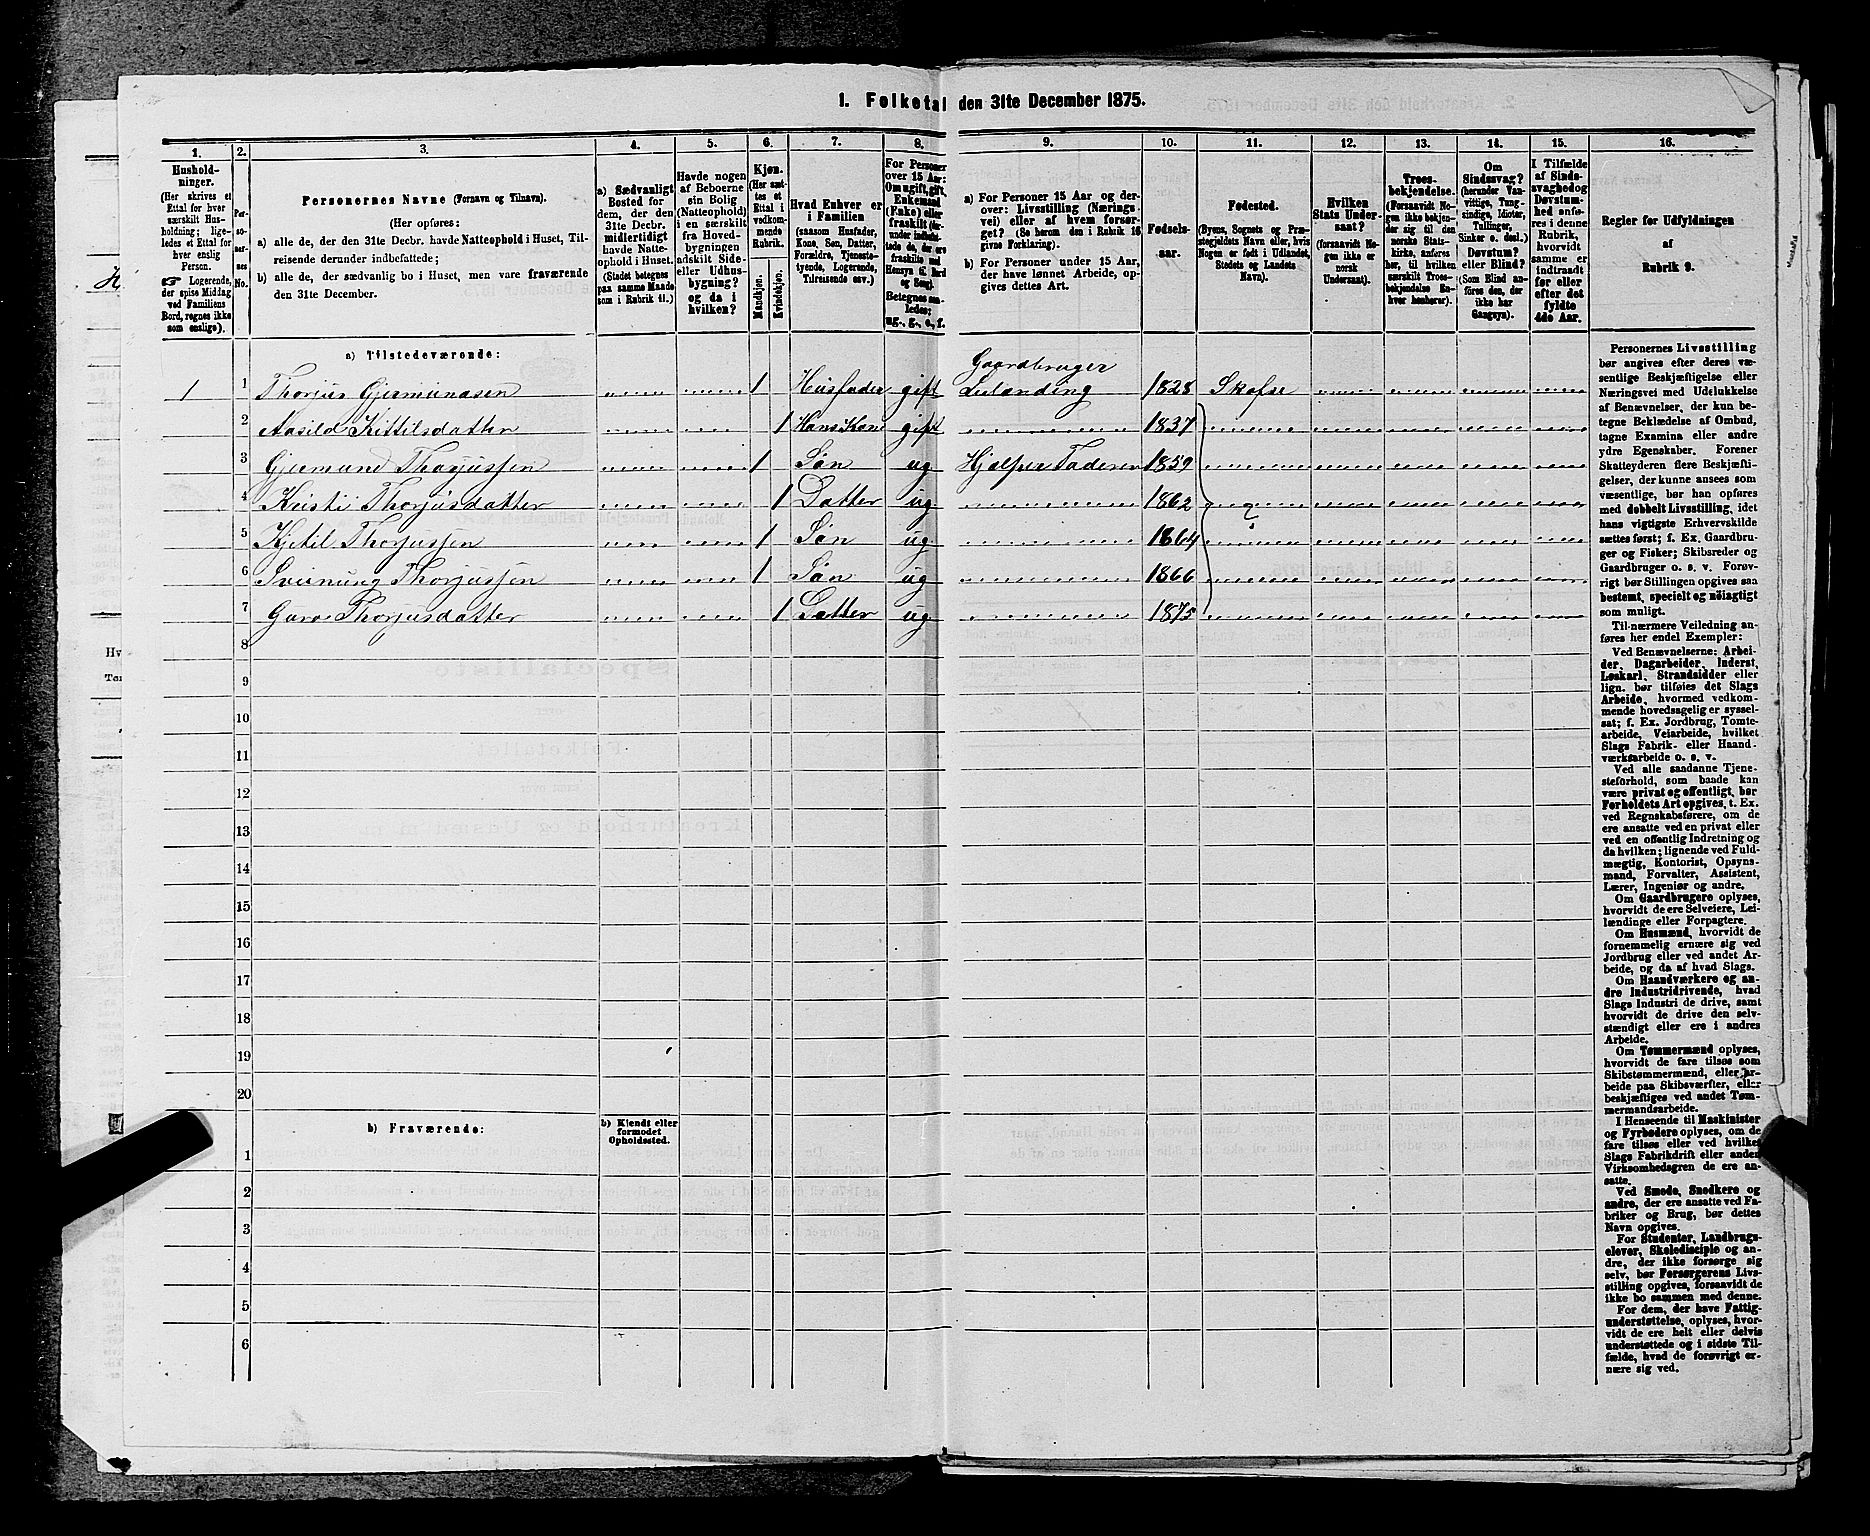 1. Folketal den 31te December 1875.
1. 2. 3. 4. 5. 6. 7. 8. 9. 10. 11. 12. 13. 14. 15. 16.
Hushold-
ninger.
(Her skrives et
Ettal for hver
særskilt Hus-
holdning; lige-
ledes et Ettal for
hver enslig
Person.
☛ Logerende,
der spise Middag
ved Familiens
Bord, regnes ikke
som enslige).
Per-
so-
ner-
nes
No.
Personernes Navne (Fornavn og Tilnavn).
(Her opføres:
a) alle de, der den 31te Decbr. havde Natteophold i Huset, Til-
reisende derunder indbefattede;
b) alle de, der sædvanlig bo i Huset, men vare fraværende
den 31te December.
a) Sædvanligt
Bosted for
dem, der den
31te Decbr.
midlertidigt
havde Natte-
ophold i Huset.
(Stedet betegnes
paa samme Maade
som i Rubrik 11.)
Havde nogen
af Beboerne
sin Bolig
(Natteophold)
i en særskilt
fra Hoved-
bygningen
adskilt Side-
eller Udhus-
bygning?
og da i
hvilken?
Kjøn.
(Her sæt-
tes et
Ettal i
vedkom-
mende
Rubrik.
Mandkjøn.
Kvindekjøn.
Hvad Enhver er
i Familien
(saasom Husfader,
Kone, Søn, Datter,
Forældre, Tjeneste-
tyende, Logerende,
Tilreisende osv.)
For Personer
over 15 Aar:
Om ugift, gift,
Enkemand
(Enke) eller
fraskilt
Betegnes saa-
ledes:
ug., g., e., f.
a) For Personer 15 Aar og der-
over: Livsstilling (Nærings-
vei) eller af hvem forsør-
get? (Se herom den i Rubrik 16
givne Forklaring).
b) For Personer under 15 Aar,
der have lønnet Arbeide, op-
gives dettes Art.
Fødsels-
aar.
Fødested.
(Byens, Sognets og Præ-
stegjeldets Navn eller, hvis
Nogen er født i Udlandet,
Stedets og Landets
Navn).
Hvilken
Stats Under-
saat?
(forsaavidt No-
gen ikke er
norsk
Undersaat).
Troes-
bekjendelse.
(Forsaavidt No-
gen ikke bekjen-
der sig til den
norske Stats-
kirke, anføres
her, til hvilken
særskilt Troes-
bekjendelse En-
hver henhører).
Om
Sindssvag?
(herunder Van-
vittige, Tung-
sindige, Idioter,
Tullinger,
Sinker o. desl.)
Døvstum?
eller Blind?
(Som Blind an-
føres den, der
ikke har
Gangsyn).
I Tilfælde
af Sinds-
svaghed og
Døvstum-
hed anfø-
res i denne
Rubrik,
hvorvidt
samme er
indtraadt
før eller
efter det
fyldte
4de Aar.
Regler for Udfyldningen
af
Rubrik 9.
a) Tilstedeværende:
Gaardbruger
1 1 Thorjus Gjermundsen 1 Husfader gift Leilænding 1828 Skafse
2 Aasild Kittilsdatter 1 Hans Kone gift 1837
3 Gjermund Thorjussen 1 Søn ug Hjælper Faderen 1859
4 Kristi Thorjusdatter 1 Datter ug 1862
5 Kjetil Thorjussen 1 Søn ug 1864
6 Sveinung Thorjussen 1 Søn ug 1866
7 Guro Thorjusdatter 1 Datter ug 1875
8
9
10
11
12
13
14
15
16
17
18
19
20
b) Fraværende:
b) Kjendt eller
formodet
Opholdssted.
1
2
3
4
5
6
Personernes Livsstilling
bør angives efter deres væ-
sentlige Beskjæftigelse eller
Næringsvei med Udelukkelse
af Benævnelser, der kun be-
tegne Beklædelse af Ombud,
tagne Examina eller andre
ydre Egenskaber. Forener
Skatteyderen flere Beskjæfti-
gelser, der kunne ansees som
væsentlige, bør han opføres
med dobbelt Livsstilling, idet
hans vigtigste Erhvervskilde
sættes først; f. Ex. Gaardbru-
ger og Fisker; Skibsreder og
Gaardbruger o. s. v. Forøv-
rigt bør Stillingen opgives saa
bestemt, specielt og nøiagtigt
som muligt.
Til nærmere Veiledning an-
føres her endel Exempler:
Ved Benævnelserne: Arbei-
der, Dagarbeider, Inderst,
Løskarl, Strandsidder eller
lign. bør tilføies det Slags
Arbeide, hvormed vedkom-
mende hovedsagelig er syssel-
sat; f. Ex. Jordbrug, Tomte-
arbeide, Veiarbeide, hvilket
Slags Fabrik- eller Haand-
værksarbeide o. s. v.
Ved alle saadanne Tjene-
steforhold, som baade kan
være privat og offentligt, bør
Forholdets Art opgives, t. Ex.
ved Regnskabsførere, om de
ere ansatte ved en privat eller
ved en offentlig Indretning og
da hvilken; lignende ved Fuld-
mægtig, Kontorist, Opsyns-
mand, Forvalter, Assistent,
Lærer, Ingeniør og andre.
Om Gaardbrugere oplyses,
hvorvidt de ere Selveiere, Lei-
lændinge eller Forpagtere.
Om Husmænd, hvorvidt de
fornemmelig ernære sig ved
Jordbrug eller ved andet Ar-
beide, og da af hvad Slags.
Om Haandværkere og an-
dre Industridrivende, hvad
Slags Industri de drive, samt
hvorvidt de drive den selv-
stændigt eller ere i andres
Arbeide.
Om Tømmermænd oplyses,
hvorvidt de fare tilsøs som
Skibstømmermænd, eller ar-
beide paa Skibsværfter, eller
beskjæftiges ved andet Tøm-
mermandsarbeide.
I Henseende til Maskinister
og Fyrbødere oplyses, om de
fare tilsøs eller ved hvilket
Slags Fabrikdrift eller anden
Virksomhedsgren de ere an-
satte.
Ved Smede, Snedkere og
andre, der ere ansatte ved Fa-
briker og Brug, bør dettes
Navn opgives.
For Studenter, Landbrugs-
elever, Skoledisciple og an-
dre, der ikke forsørge sig
selv, bør Forsørgerens Livs-
stilling opgives, forsaavidt de
ikke bo sammen med denne.
For dem, der have Fattig-
understøttelse, oplyses, hvor-
vidt de ere helt eller delvis
understøttede og i sidste Til-
fælde, hvad de forøvrigt er-
nære sig ved.